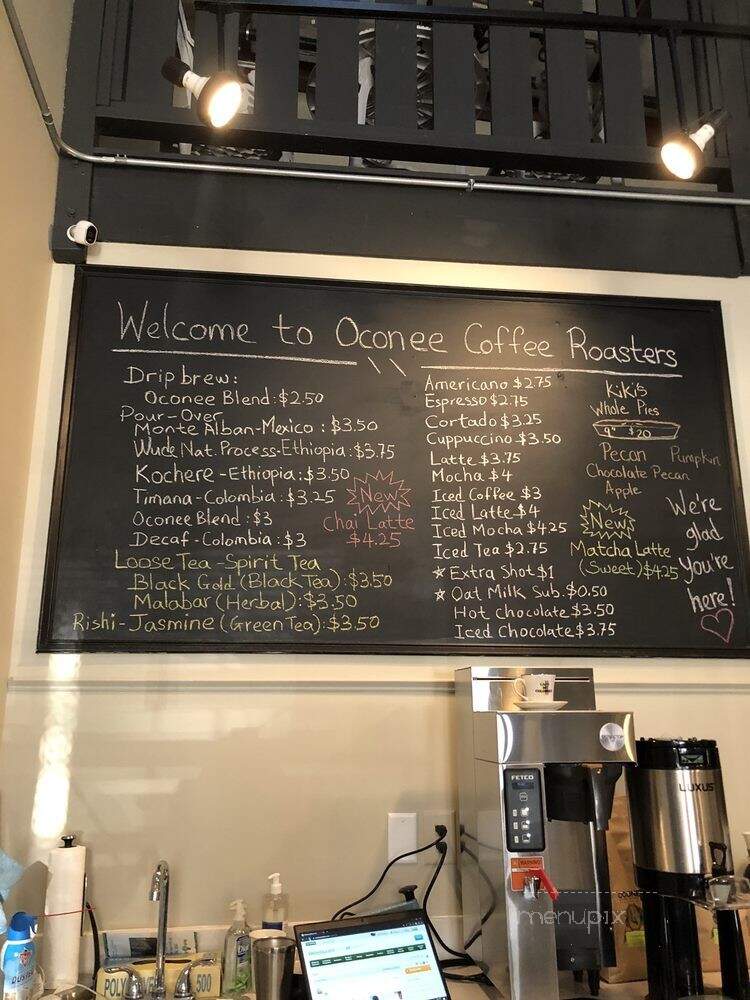 Welcome to Oconee Coffee Roasters
Drip brew:
Oconee Blend: $2.50
Pour-Over
Monte Alban-Mexico: $3.50
Wude Nat. Process-Ethiopia: $3.75
Kochere-Ethiopia: $3.50
Timana-Colombia: $3.25
Oconee Blend: $3
Decaf-Colombia: $3
New
Chai Latte
$4.25
Loose Tea-Spirit Tea
Black Gold (Black Tea): $3.50
Malabar (Herbal): $3.50
Rishi-Jasmine (Green Tea): $3.50
Americano $2.75
Espresso $2.75
Cortado $3.25
Cuppuccino $3.50
Latte $3.75
Mocha $4
Iced Coffee $3
Iced Latte $4
Iced Mocha $4.25
Iced Tea $2.75
☆ Extra Shot $1
☆ Oat Milk Sub. $0.50
Hot Chocolate $3.50
Iced Chocolate $3.75
KiKi's
Whole Pies
9" $20
Pecan Pumpkin
Chocolate Pecan
Apple
New
Matcha Latte
(Sweet) $4.25
We're
glad
you're
here!
FETCO
WARNING
LUXUS
menupix
POLY
500